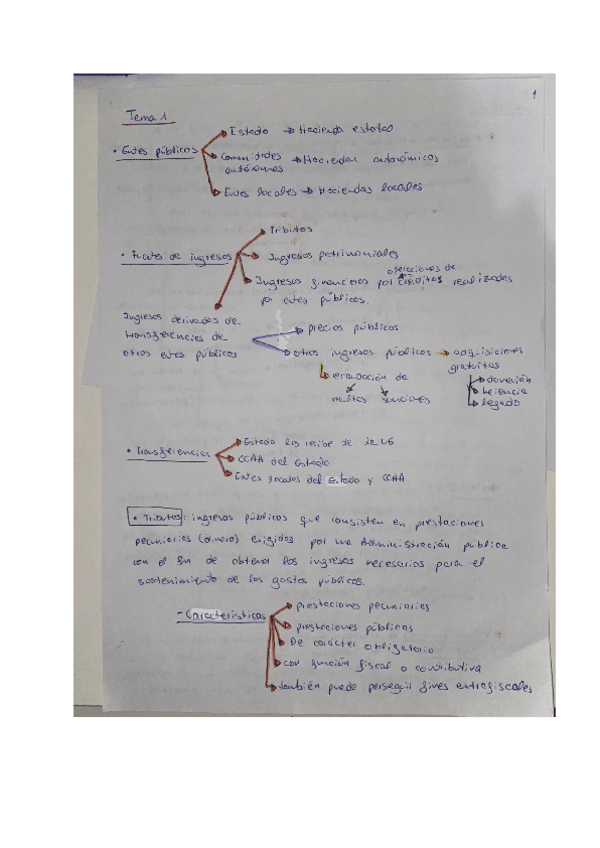 1
Tema 1
• Entes públicos
Estado → Hacienda estatal
Comunidades → Haciendas autonómicas
autónomas
Entes locales → Haciendas locales
• Fuentes de ingresos
Tributos
Ingresos patrimoniales
operaciones de
Ingresos financieros por créditos realizadas
por entes públicos.
Ingresos derivados de
transferencias de
otros entes públicos
precios públicos
otros ingresos públicos → adquisiciones
gratuitas
donación
herencia
legado
recaudación de
multas sanciones
• Transferencias
Estado los recibe de la UE
CCAA del Estado
Entes locales del Estado y CCAA.
• Tributos: ingresos públicos que consisten en prestaciones
pecuniarias (dinero) exigidos por una Administración pública
con el fin de obtener los ingresos necesarios para el
sostenimiento de los gastos públicos.
- Características
prestaciones pecuniarias
prestaciones públicas
De carácter obligatorio
con función fiscal o contributiva
también puede perseguir fines extrafiscales